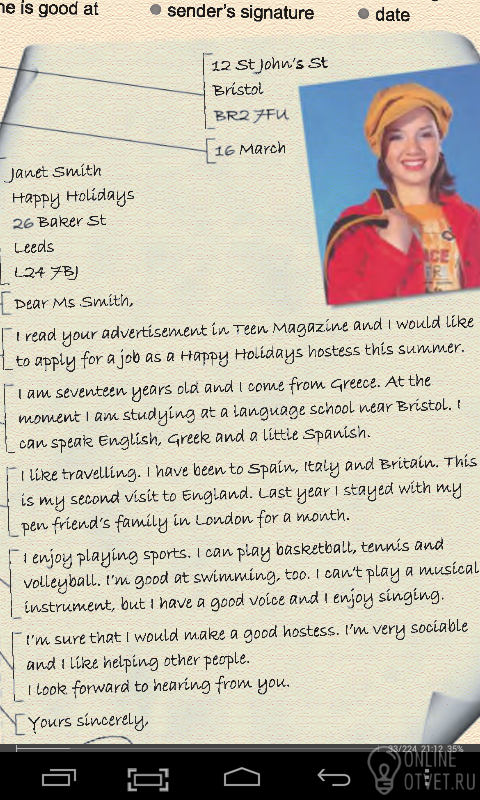 ne is good at
sender's signature
date
12 St John's St
Bristol
BR2 7FU
16 March
Janet Smith
Happy Holidays
26 Baker St
Leeds
L24 7BJ
Dear Ms Smith,
I read your advertisement in Teen Magazine and I would like
to apply for a job as a Happy Holidays hostess this summer.
I am seventeen years old and I come from Greece. At the
moment I am studying at a language school near Bristol. I
can speak English, Greek and a little Spanish.
I like travelling. I have been to Spain, Italy and Britain. This
is my second visit to England. Last year I stayed with my
pen friend's family in London for a month.
I enjoy playing sports. I can play basketball, tennis and
volleyball. I'm good at swimming, too. I can't play a musical
instrument, but I have a good voice and I enjoy singing.
I'm sure that I would make a good hostess. I'm very sociable
and I like helping other people.
I look forward to hearing from you.
Yours sincerely,
93/224 21:12 35%
ONLINE
OTVET.RU